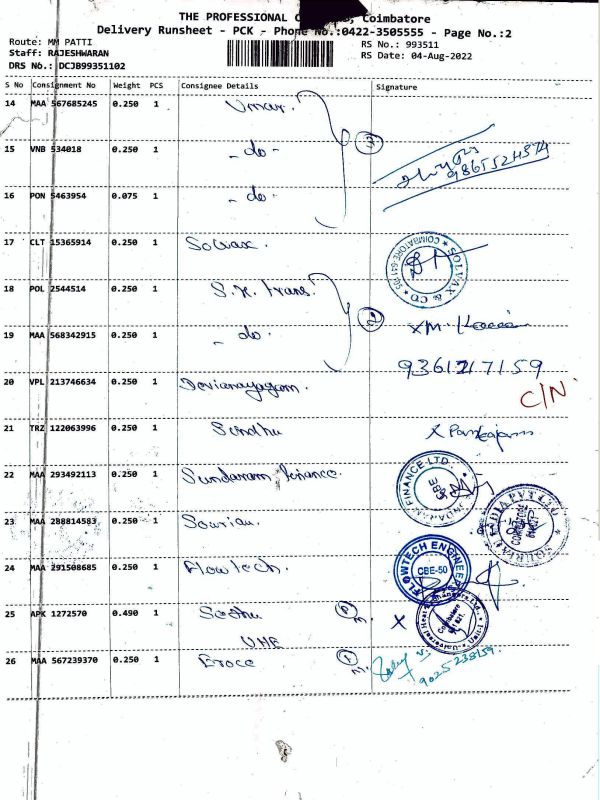 THE PROFESSIONAL Coimbatore
Delivery Runsheet - PCK - Phone No.:0422-3505555 - Page No.:2
Route: MM PATTI
RS No.: 993511
Staff: RAJESHWARAN
RS Date: 04-Aug-2022
DRS No.: DCJB99351102
S No Consignment No Weight PCS Consignee Details Signature
14 MAA 567685245 0.250 1 Umar.
15 VNB 534018 0.250 1 - do - 3 9865524374
16 PON 5463954 0.075 1 - do -
17 CLT 15365914 0.250 1 Solvax. SOLVAX & CO COIMBATORE-641
18 POL 2544514 0.250 1 S.K. trans. 2
19 MAA 568342915 0.250 1 - do - XM.
9361217159
20 VPL 213746634 0.250 1 Devianayagam. C/N
21 TRZ 122063996 0.250 1 Sindhu X
22 MAA 293492113 0.250 1 Sundaram finance. FINANCE LTD. CBE
23 MAA 288814583 0.250 1 Souriau. INDIA PVT LTD COIMBATORE
24 MAA 291508685 0.250 1 Flowtech. FLOWTECH ENGINEER CBE-50
25 APK 1272570 0.490 1 Sedhu X Universal Heat Exchangers Ltd. Coimbatore
UHE
26 MAA 567239370 0.250 1 Broce 1 9025238159.